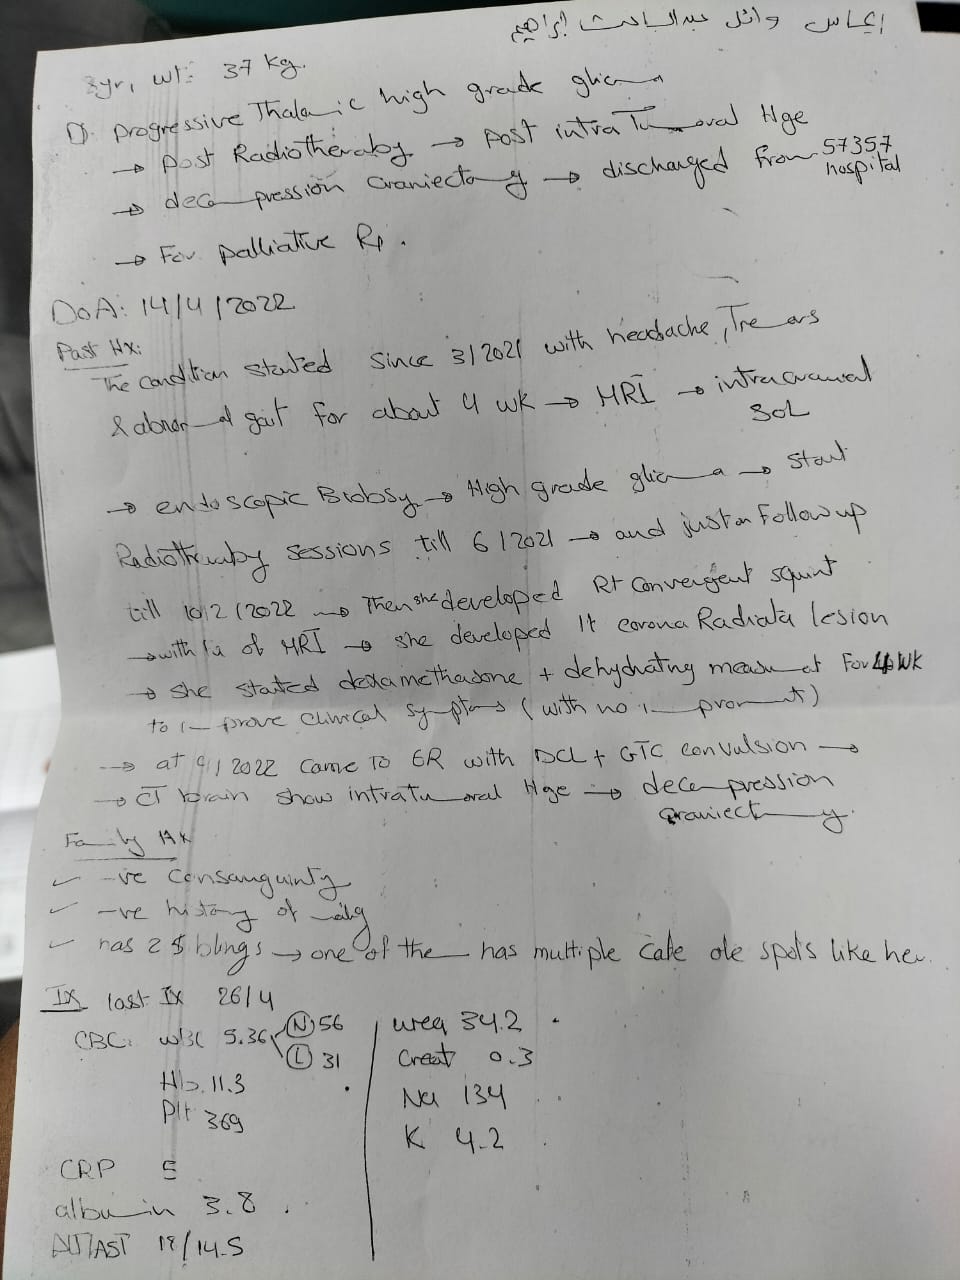 وائل عبدالباعث ابراهيم
3yr, wt: 37 kg.
D: progressive Thalamic high grade glioma
→ post Radiotheraby → post intra Tumoral Hge
→ decompression craniectomy → discharged from 57357 hospital
→ For palliative Rx.
DoA: 14/4/2022
Past Hx:
The condition started since 3/2021 with headache, Tremors
& abnormal gait for about 4 wk → MRI → intracranial
SOL
→ endoscopic Biobsy → High grade glioma → start
Radiotheraby sessions till 6/2021 → and just on Follow up
till 10/2/2022 → Then she developed Rt convergent squint
→ with fu of MRI → she developed lt corona Radiata lesion
→ she started dexamethasone + dehydrating measurment For 4 wk
to improve clinical symptoms (with no improvment)
→ at 4/2022 came to ER with DCL + GTC convulsion →
→ CT brain show intratumoral Hge → decompression
craniectomy.
Family Hx
✓ -ve consanguinty
✓ -ve history of malig
✓ has 2 siblings → one of them has multiple cafe ole spots like her.
IX last IX 26/4
CBC: WBC 5.36 N 56
L 31
Hb. 11.3
Plt 369
CRP 5
albumin 3.8
ALT/AST 18/14.5
urea 34.2
Creat 0.3
Na 134
K 4.2